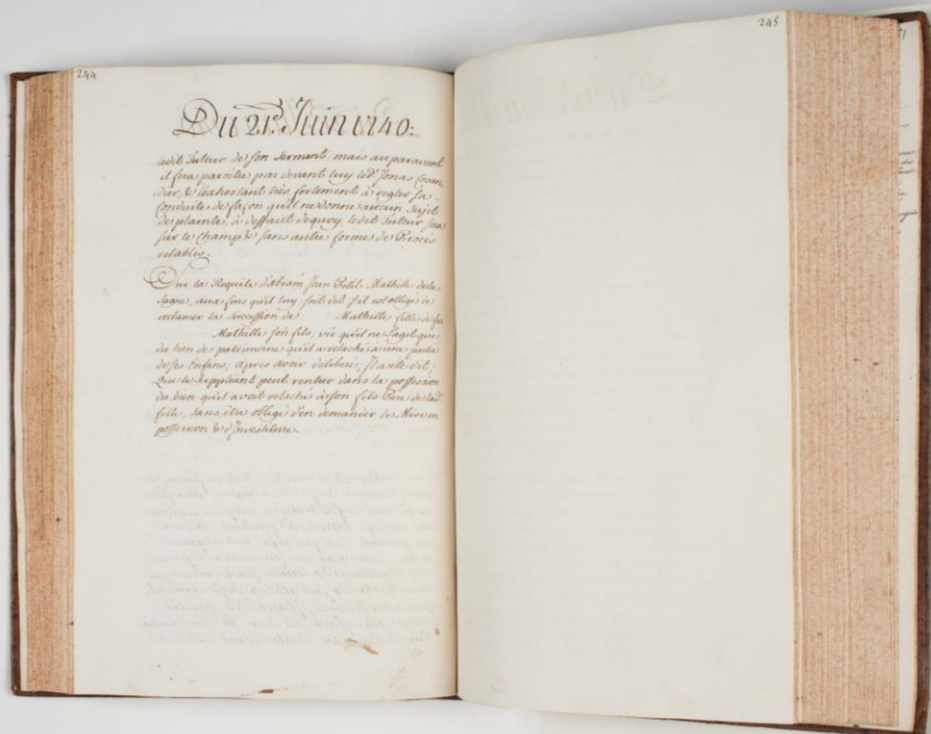 244
Du 21e. Juin 1740:
ledit Tuteur de son serment, mais auparavant
il fera paroitre par devant luy led. Jonas
& l'exhortant très fortement à regler sa
Conduite de façon qu'il ne donne aucun sujet
de plainte, à deffaut dequoy, ledit Tuteur sera
sur le Champ & sans autre forme de Procès
retabli.
Sur la Requete d'Abram Jean Petit Mathille de la
Sagne, aux fins qu'il luy soit dit s'il est obligé de
reclamer la succession de Mathille fille de feu
Mathille son fils, vû qu'il ne s'agit que
du bien de patrimoine qu'il a relaché à une partie
de ses Enfans; après avoir deliberé; Il a eté dit;
Que le suppliant peut rentrer dans la possession
du bien qu'il avoit relaché à son fils Pere de lad.
fille, sans être obligé d'en demander de Mise en
possession & d'Investiture.
245